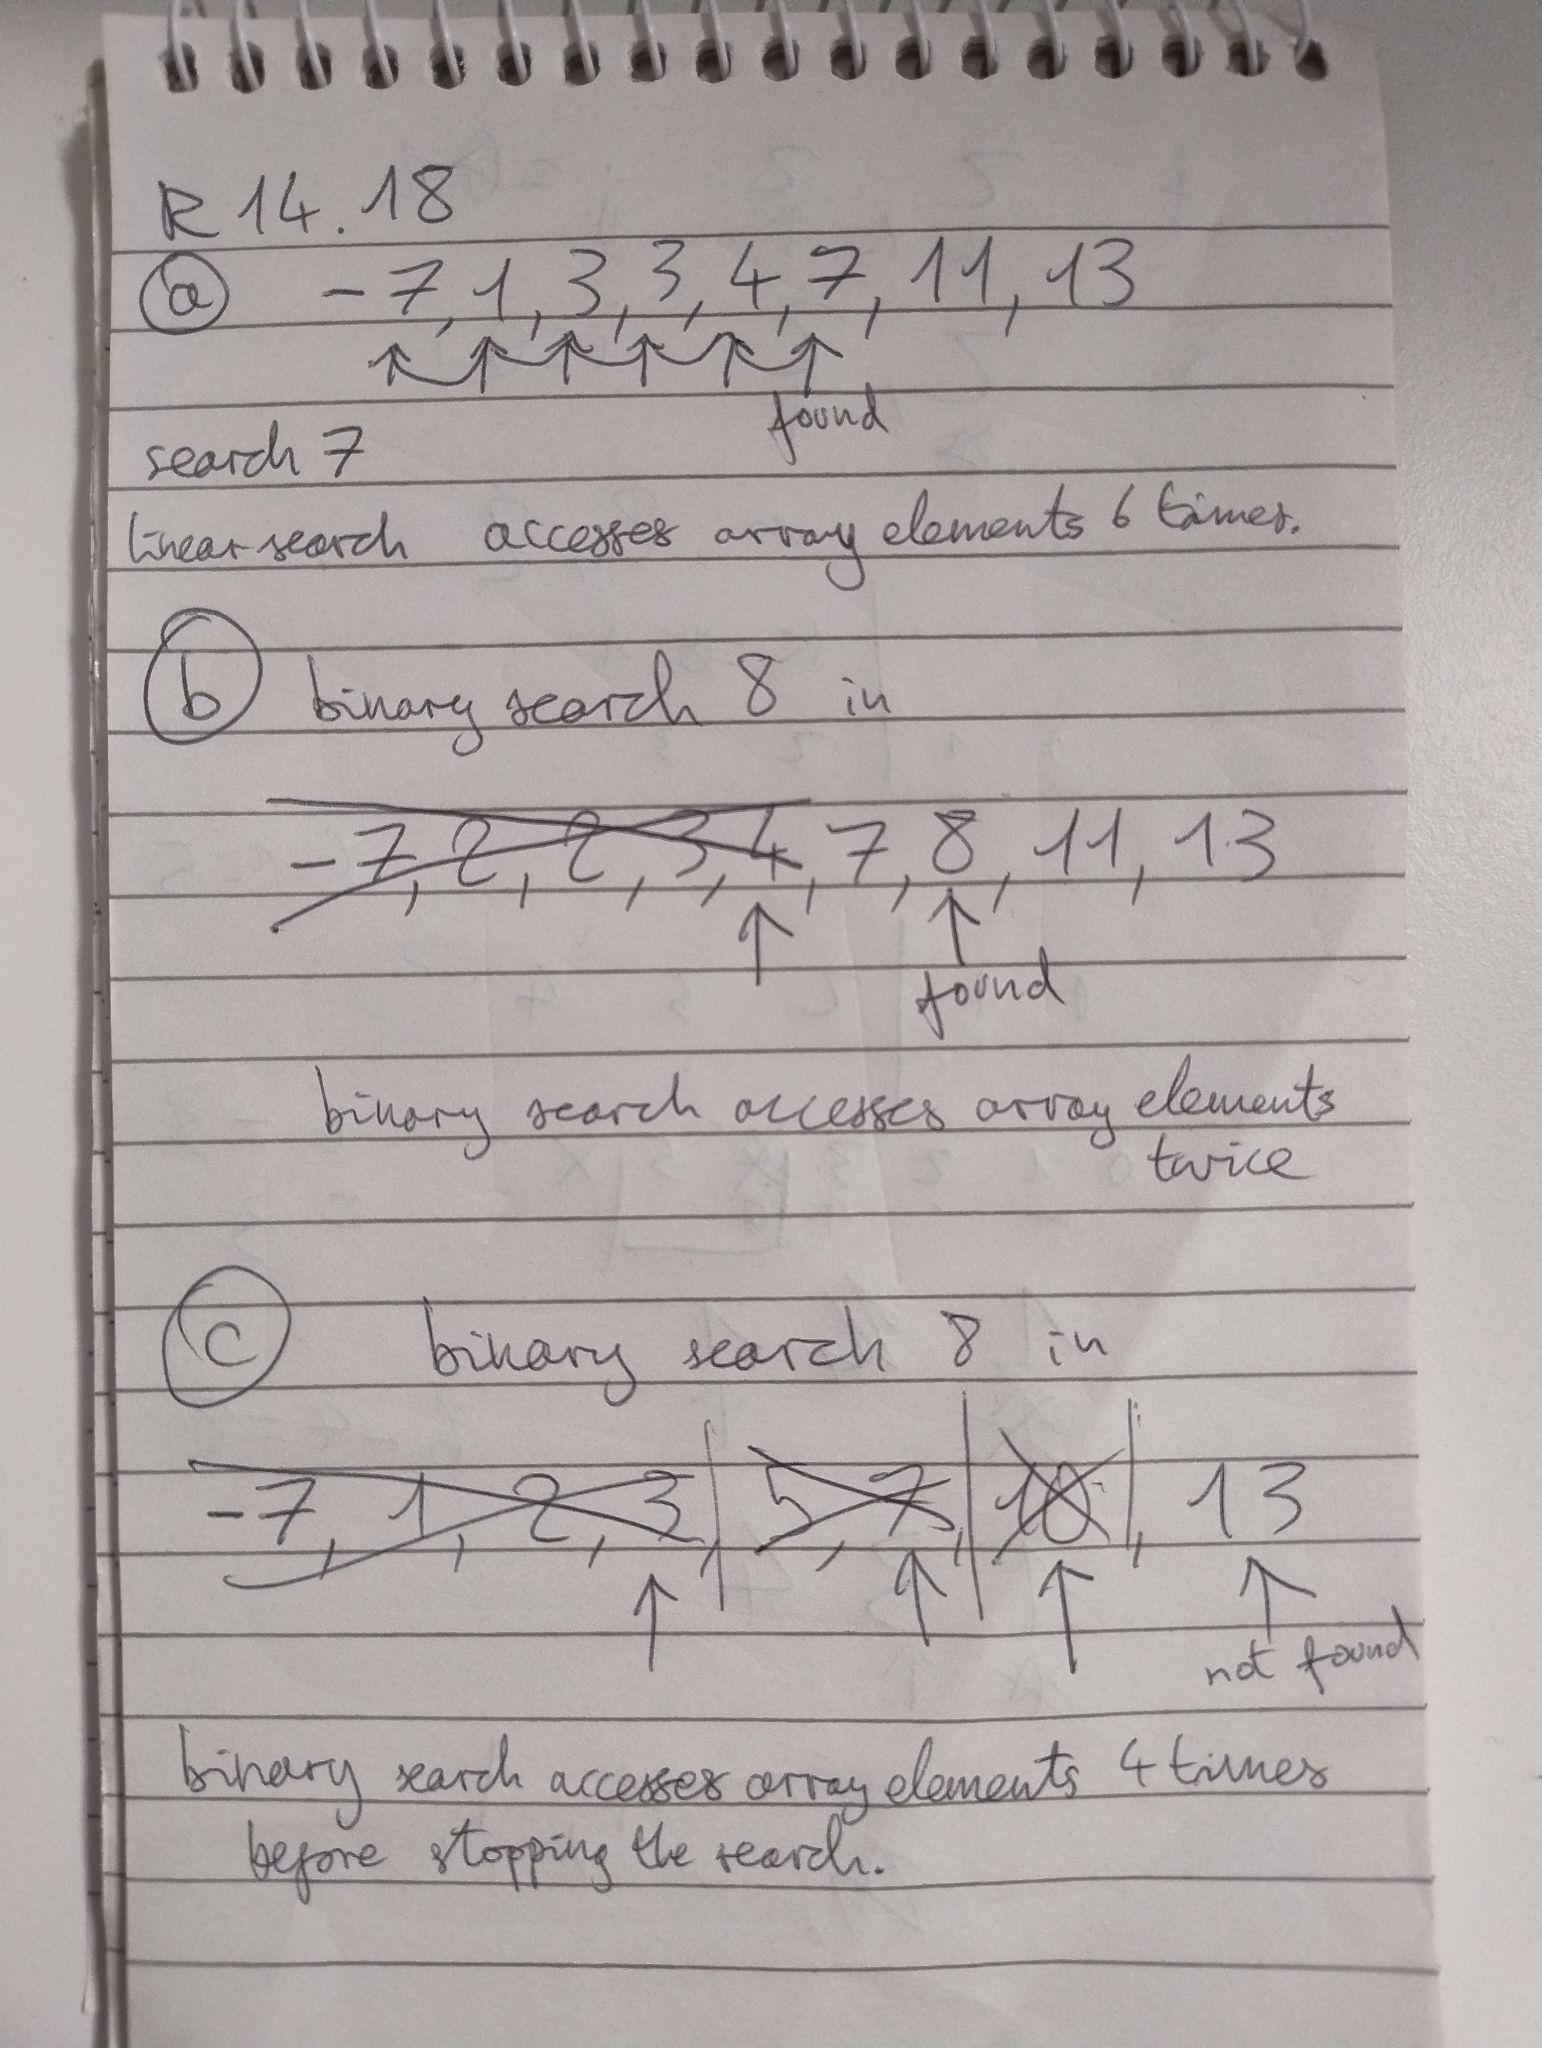 R 14.18
a -7, 1, 3, 3, 4, 7, 11, 13
found
search 7
linear search accesses array elements 6 times.
b binary search 8 in
-7, 2, 2, 3, 4, 7, 8, 11, 13
found
binary search accesses array elements
twice
c binary search 8 in
-7, 1, 2, 3, 5, 7, 10, 13
not found
binary search accesses array elements 4 times
before stopping the search.